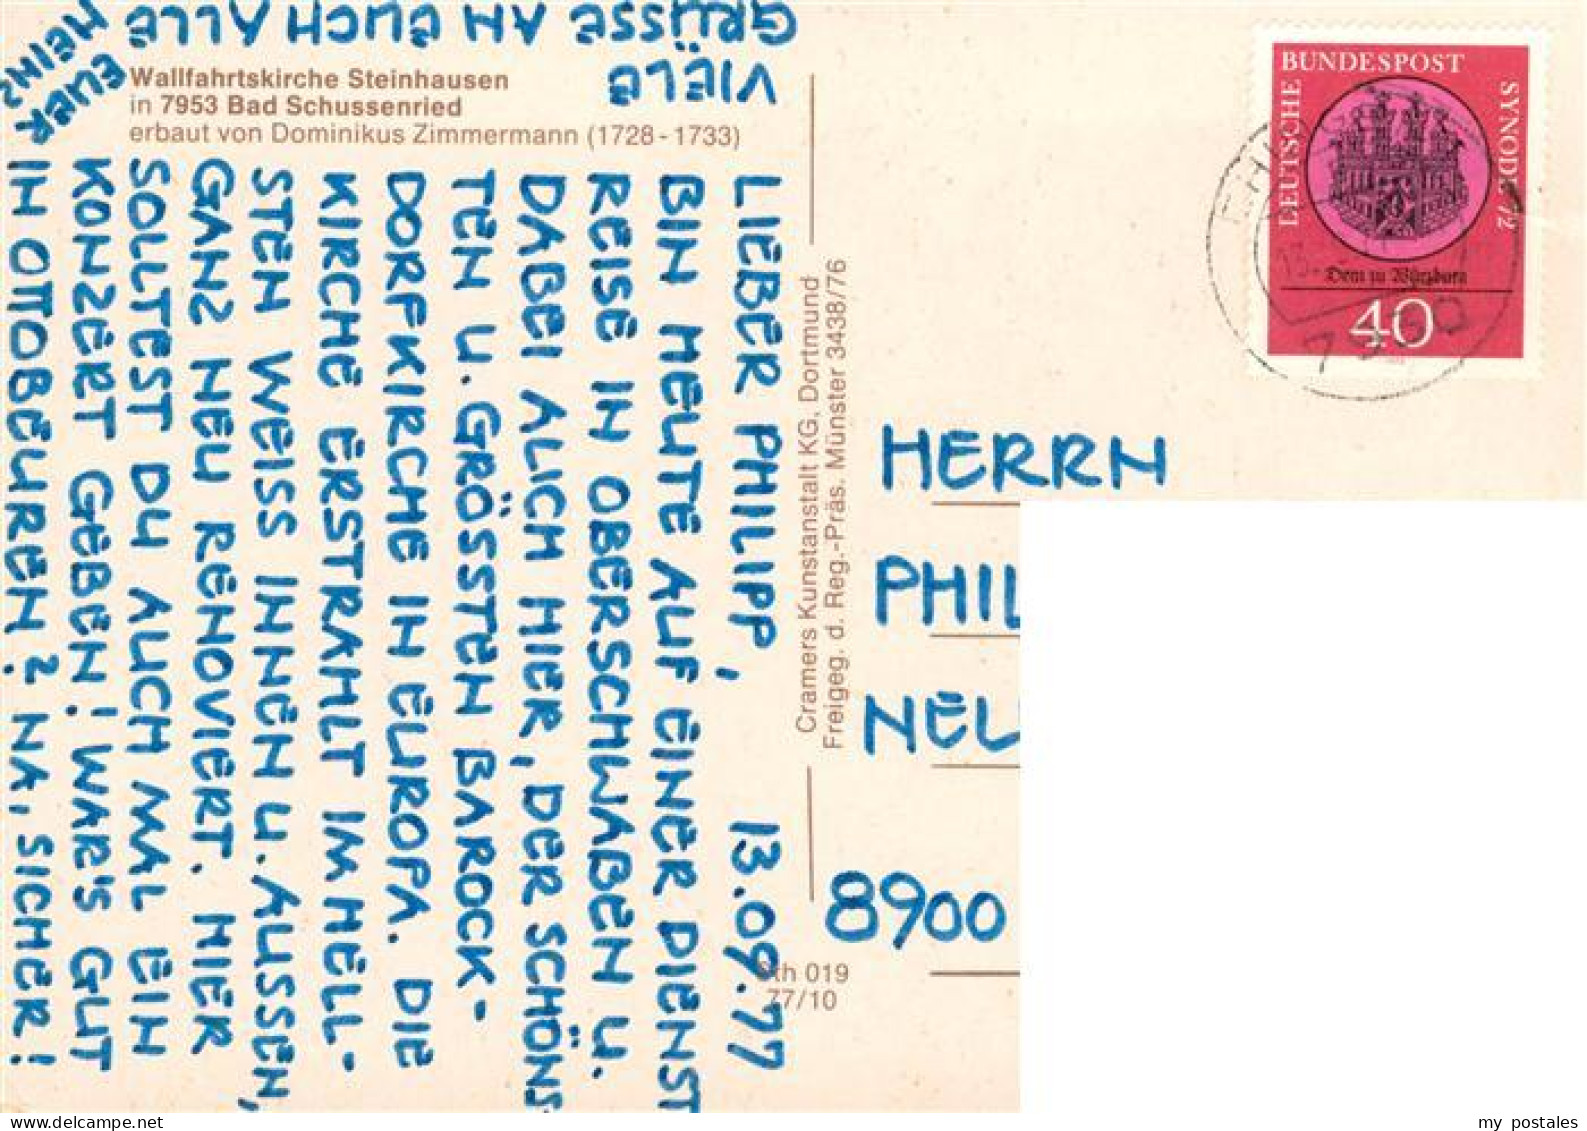 Wallfahrtskirche Steinhausen
in 7953 Bad Schussenried
erbaut von Dominikus Zimmermann (1728-1733)
LIEBER PHILIPP, 13.09.77
BIN HEUTE AUF EINER DIENST
REISE IN OBERSCHWABEN U.
DABEI AUCH HIER, DER SCHÖNS
TEN U. GRÖSSTEN BAROCK-
DORFKIRCHE IN EUROPA. DIE
KIRCHE ERSTRAHLT IM HELL-
STEN WEISS INNEN U. AUSSEN,
GANZ NEU RENOVIERT. HIER
SOLLTEST DU AUCH MAL EIN
KONZERT GEBEN! WAR'S GUT
IN OTTOBEUREN? NA, SICHER!
VIELE
GRÜSSE AN EUCH ALLE
EUER
HEINZ
Cramers Kunstanstalt KG, Dortmund
Freigeg. d. Reg.-Präs. Münster 3438/76
Sth 019
77/10
DEUTSCHE
BUNDESPOST
SYNODE 72
Dom zu Würzburg
40
HERRN
PHIL
NEU
8900
my postales